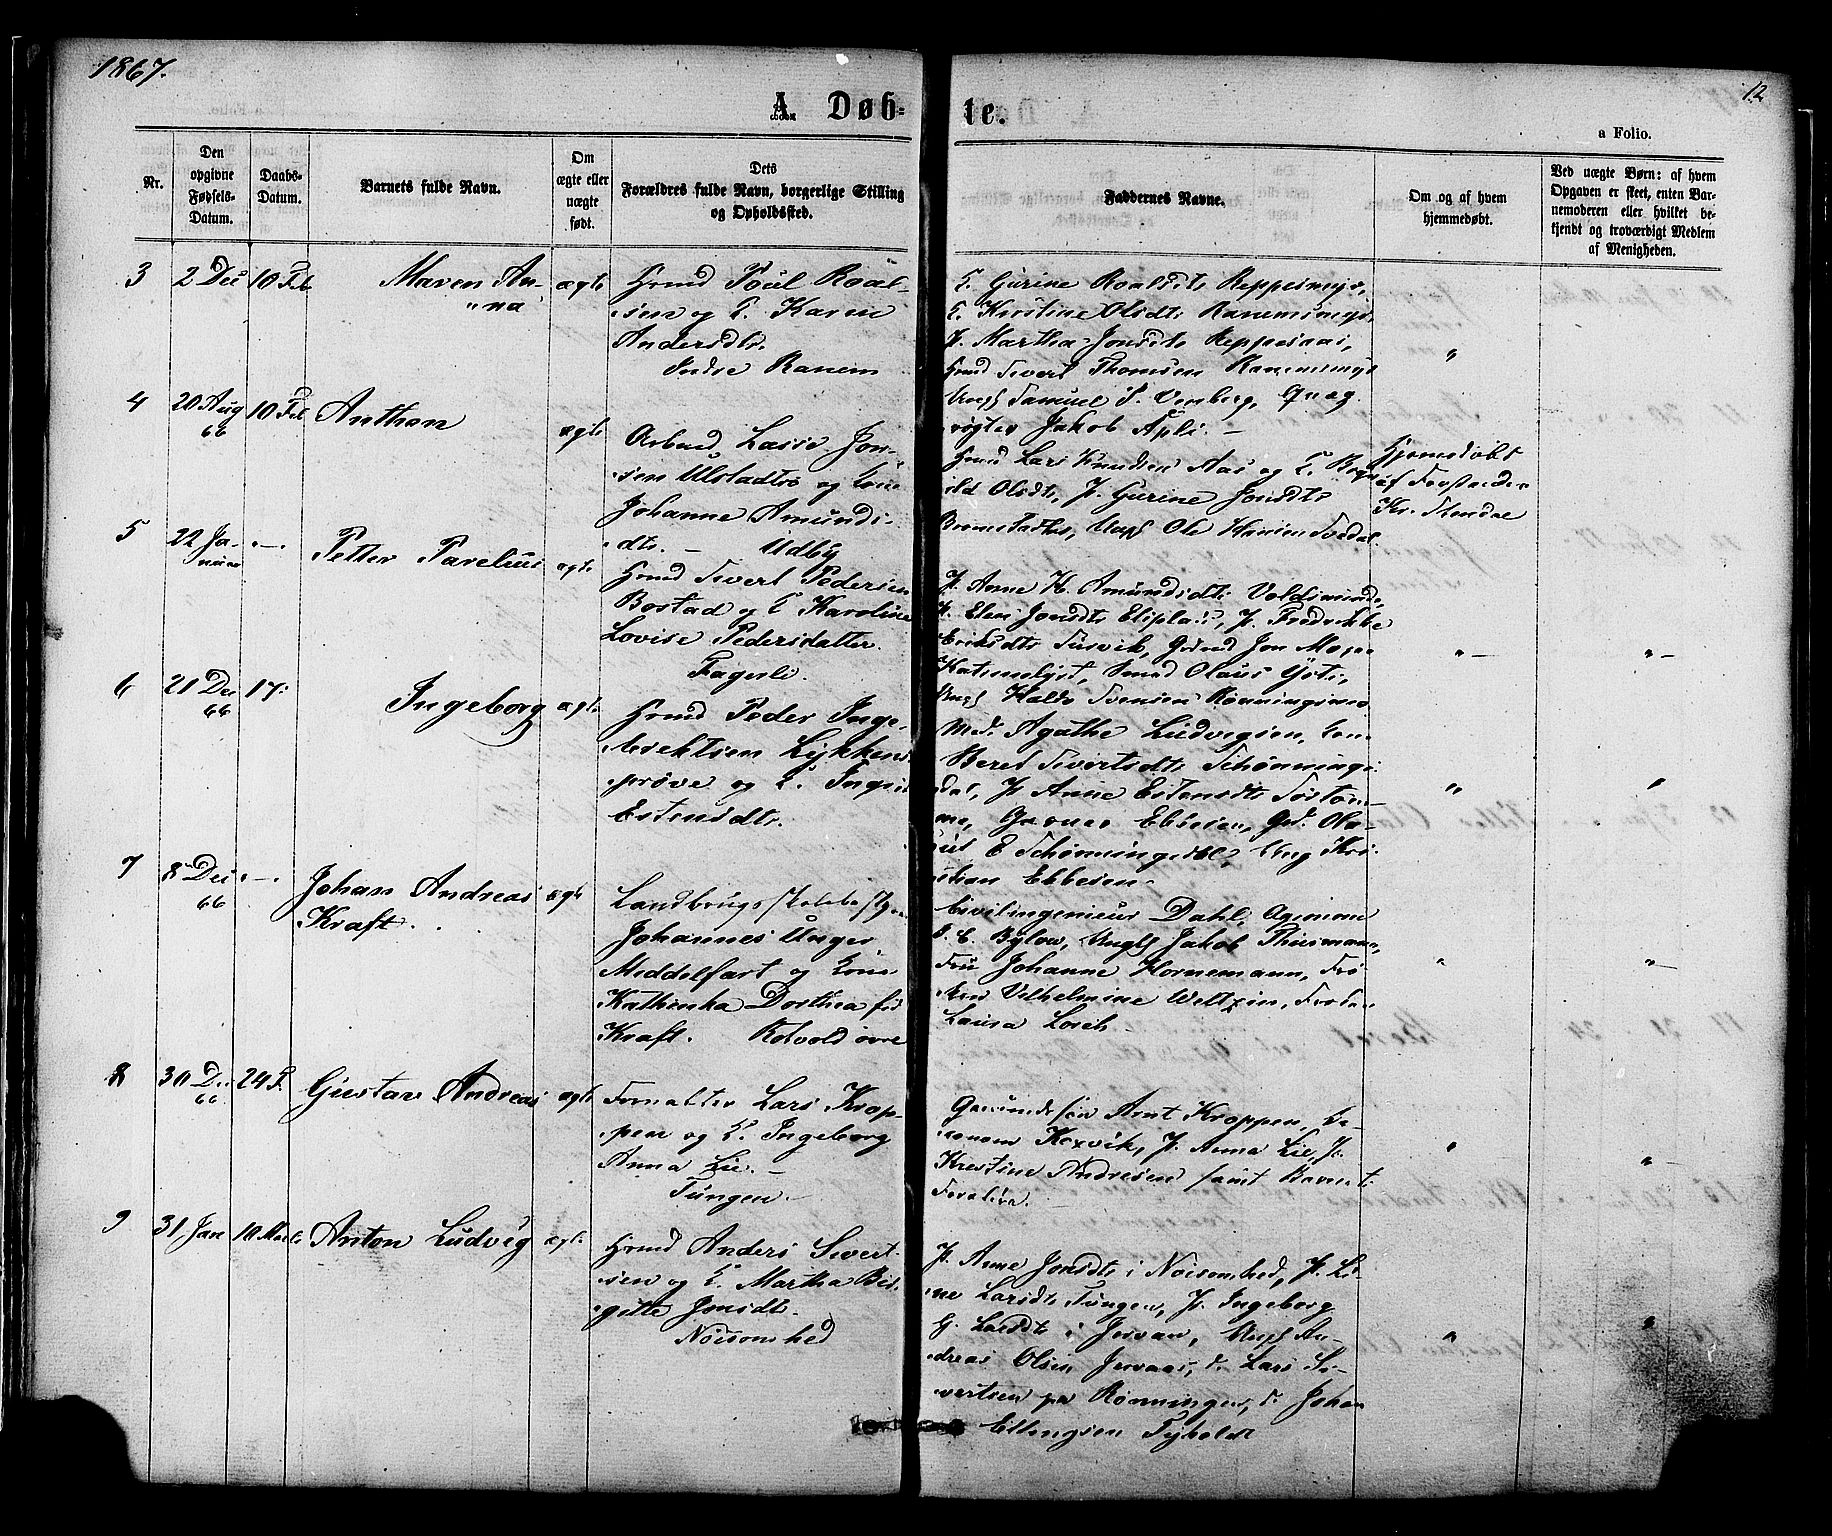 1867.
12
A. Døb-
te.
a Folio.
Nr.
Den opgivne Fødsels-Datum.
Daabs-Datum.
Barnets fulde Navn.
Om ægte eller uægte født.
Dets Forældres fulde Navn, borgerlige Stilling og Opholdssted.
Faddernes Navne.
Om og af hvem hjemmedøbt.
Ved uægte Børn: af hvem Opgaven er skeet, enten Barnemoderen eller hvilket bekjendt og troværdigt Medlem af Menigheden.
3
2 Dec
10 Feb
Maren An-
"na
ægte
Grmd Poul Roal-
sen og K. Karen
Andersdtr.
Indre Ranem
K. Gurine Roaldts Reppesmyr,
K. Kirstine Olsdtr Ranemsmyr,
P. Martha Jonsdtr Reppesaas,
Grmd Sivert Thomsen Ranemsmyr
Ungk Samuel P. Venberg,
røgter Jakob Apli. -
"
4
20 Aug
66
10 Feb
Anthon
ægte
Arbmd Lasse Jon-
sen Ulstadtrø og Kone
Johanne Amunds-
dtr. - Udby
Grmd Lars Knudsen Aas og K.
ild Olsdtr, P. Gurine Jonsdtr
Bromstadtrø, Ungk Ole Hansen
Hjemmedøbt
af
Kr. Stendal
5
22 Ja-
nuar
-
Petter Parelius
ægte
Grmd Sivert Pedersen
Bostad og K Karoline
Lovise Pedersdatter.
Fagerli.
P. Anne H. Amundsdtr Voldsminde,
K. Elen Jonsdtr Elsplads, P. Fredrikke
Eriksdtr Tusvik, Grdmd Jon Moxn
Katrinelyst, Smed Olaus Gjete,
Ungk Haldo Svensen Rønningsmo
" -
" -
6
21 Dec
66
17.
Ingeborg
ægte
Grmd Peder Inge-
brektsen Lykkens
prøve og K. Ingeb
Estensdtr.
Md. Agathe Ludvigsen, Kone
Beret Sivertsdtr Schønnings-
dal, P. Anne Estensdtr
Garver Ebbesen, Grd. Ola-
us E Schønningsdal, Ung Kri-
stian Ebbesen.
"
"
7
8 Dec
66
-
Johan Andreas
Kraft.
ægte
Landbrugsskolebestyrer
Johannes Unger
Middelfart og Kone
Kathinka Dorthea fød
Kraft. Rotvold øvre
Civilingenieur Dahl, Agronom
J. C. Bylow, Ungk Jakob Thiesmann,
Fru Johanne Hornemann, Frø
ken Vilhelmine Weltzin, Frøken
Laura Lorch.
"
" -
8
30 Dec
66
24 F.
Gustav Andreas
ægte
Forvalter Lars Krop-
pen og K. Ingeborg
Anna Lie. -
Tungen. -
Gaardmdssøn Arnt Kroppen,
conom Koxvik, P. Anna Lie, P.
Krestine Andresen samt Barnets
Forældre.
"
" -
9
31 Jan
10 Marts
Anton Ludvig
ægte
Grmd Anders Sivert-
sen og K. Martha Bir-
gitte Jonsdtr.
Nøisomhed
P. Anne Jonsdtr i Nøisomhed, P. Li-
ne Larsdtr Tungen, P. Ingeborg
G. Larsdtr i Jervan, Ungk An-
dreas Olsen Jervaas, do Lars Si-
vertsen paa Rønningen, do Johan
Ellingsen Tyholdt
"
"